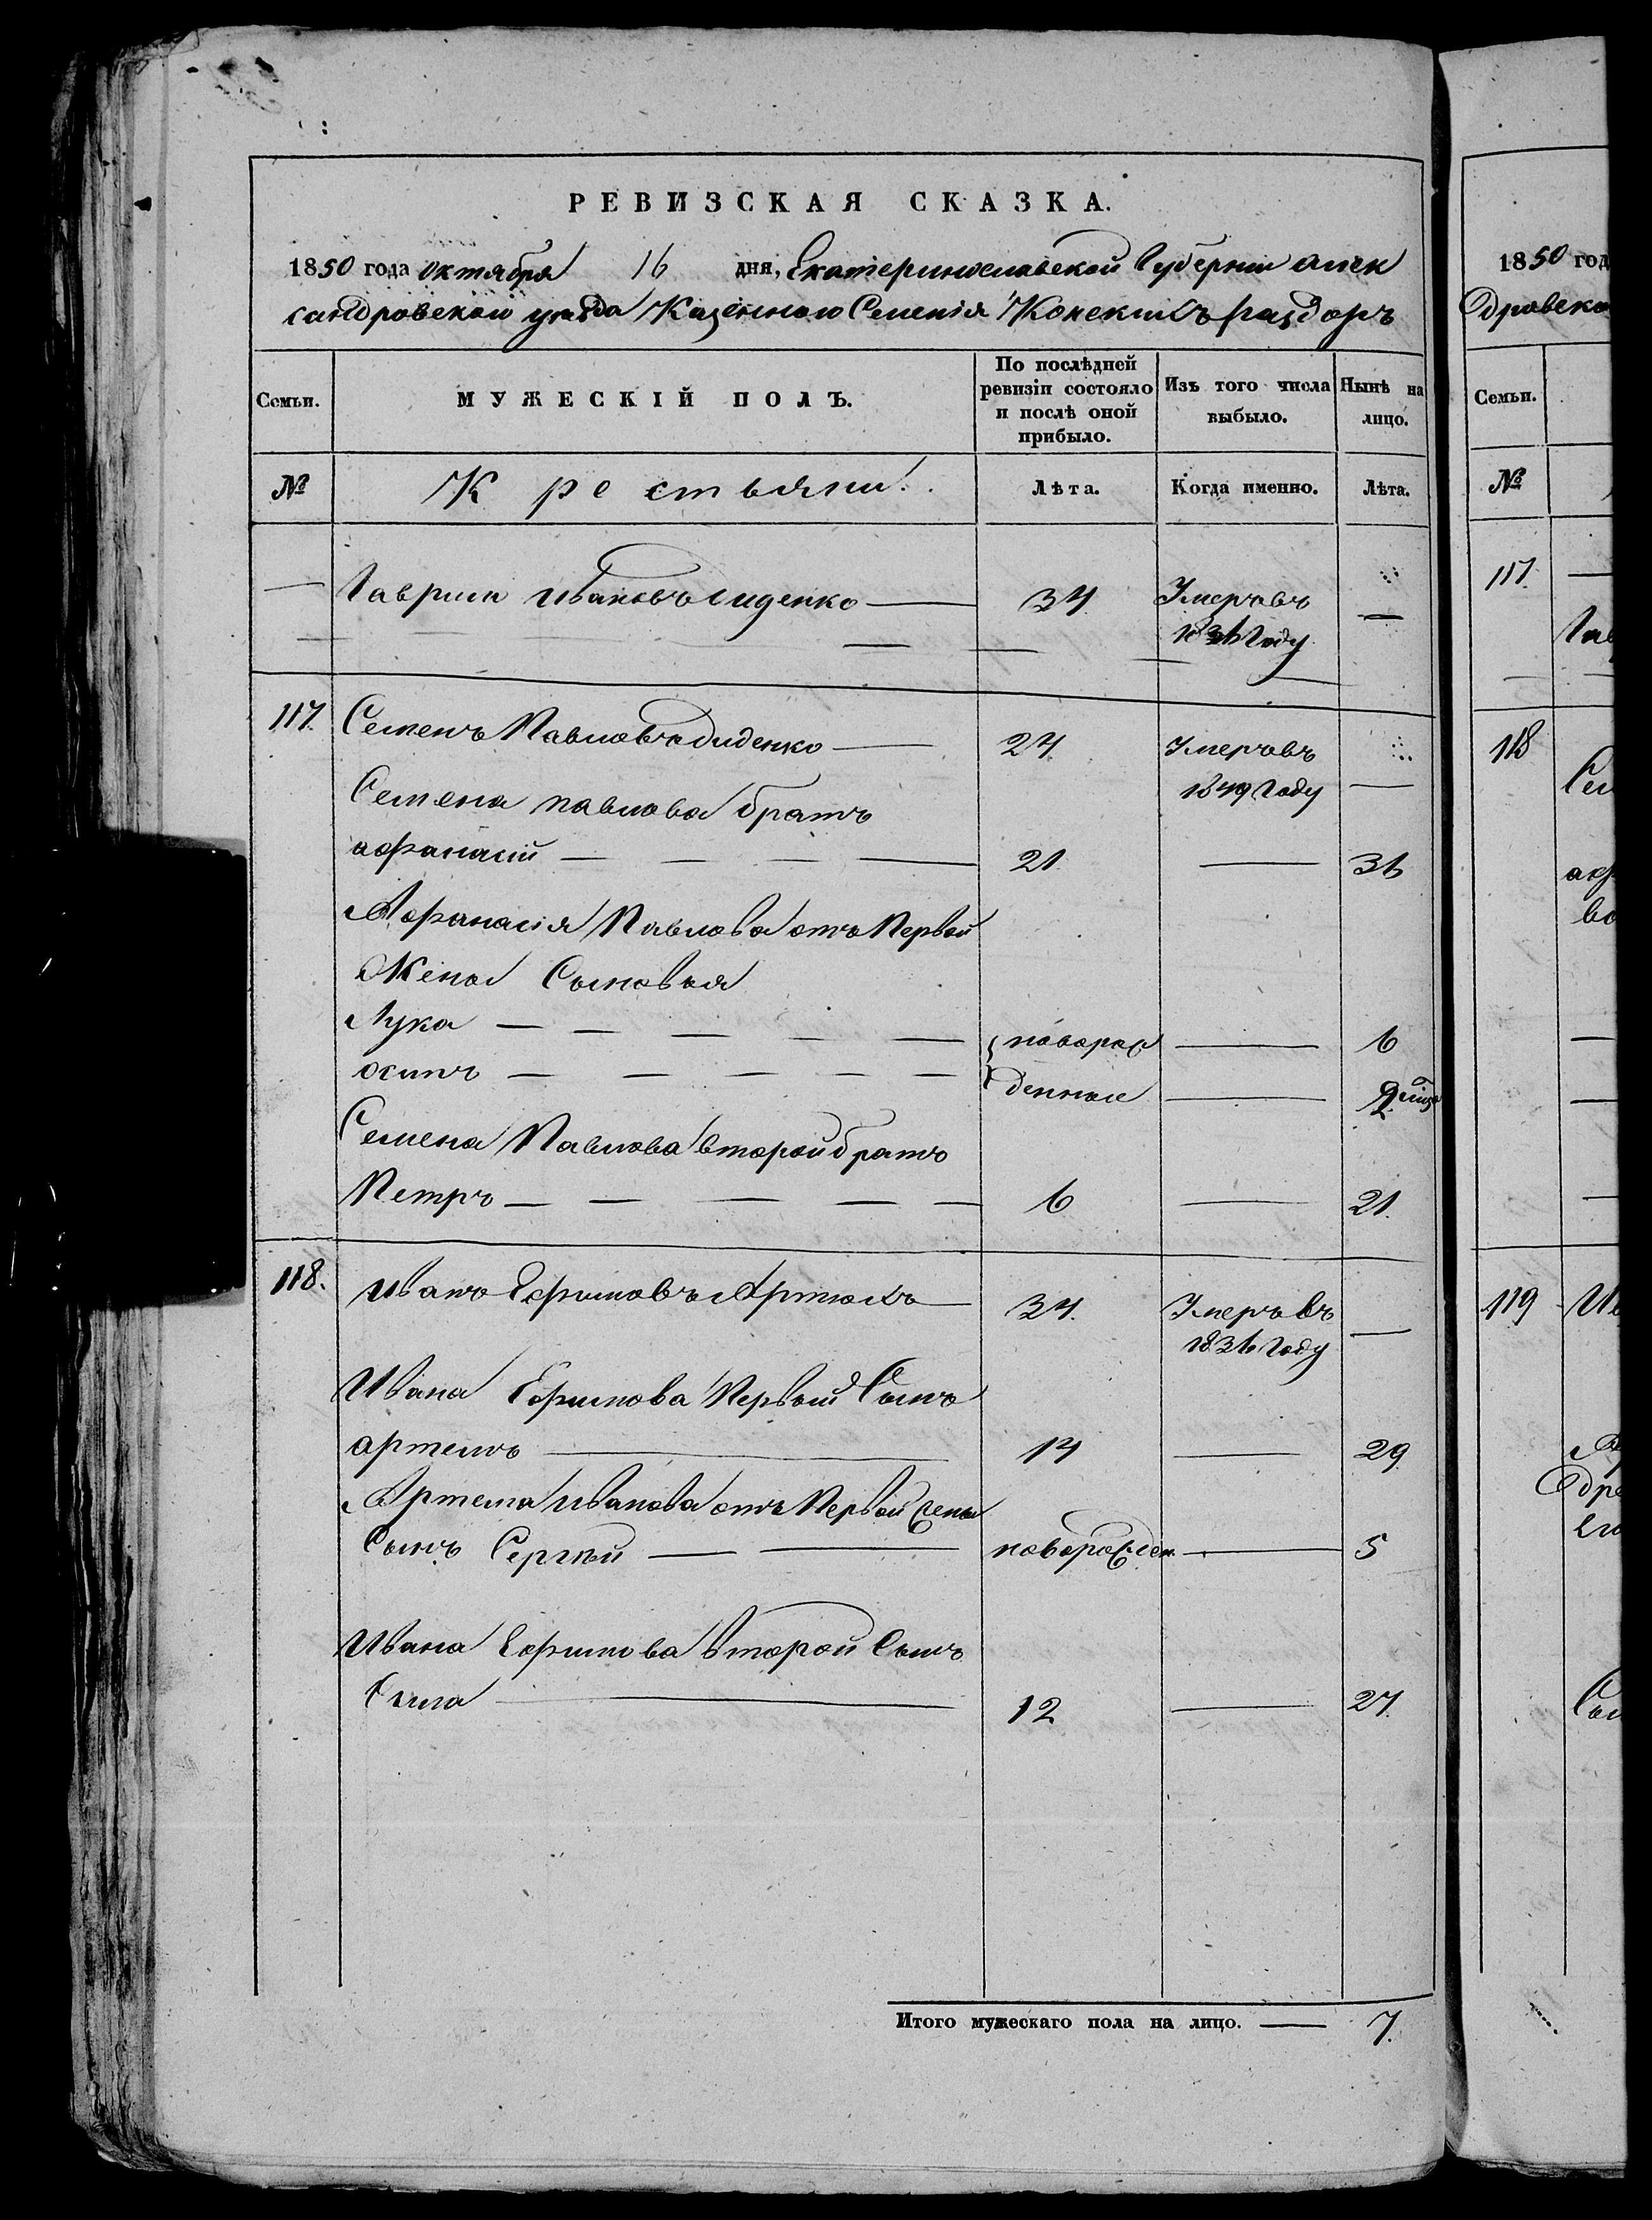 РЕВИЗСКАЯ СКАЗКА.
1850 года октября 16 дня, Екатеринославской Губернии алек
сандровскои уезда Казенного Селенія Конскихъ раздоръ
Семьи. МУЖЕСКІЙ ПОЛЪ. По послѣдней ревизіи состояло и послѣ оной прибыло. Изъ того числа выбыло. Нынѣ на лицо.
№ Крестьяни. Лѣта. Когда именно. Лѣта.
— Гаврила Ивановъ диденко — 34 Умеръ въ —
1836 Году
117. Семенъ Павловъ диденко — 24 Умеръ въ
Семена павлова братъ 1849 Году —
афанасій — 21 — 36
Афанасія Павлова отъ Первой
Жены Сыновья
Лука — новорож — 6
осипъ — денные — 2
Семена Павлова второй братъ
Петръ — 6 — 21.
118. Иванъ Ефимовъ Артюхъ 34. Умеръ въ —
1836 Году
Ивана Ефимова Первый Сынъ
артемъ — 14 — 29
Артема Иванова отъ Первой жены
Сынъ Сергѣй — новорожден — 5
Ивана Ефимова второй Сынъ
— 12 — 27.
Итого мужескаго пола на лицо. — 7.
1850 год
дровско
Семьи.
№
117.
Гав
118
Сем
аф
119 Ив